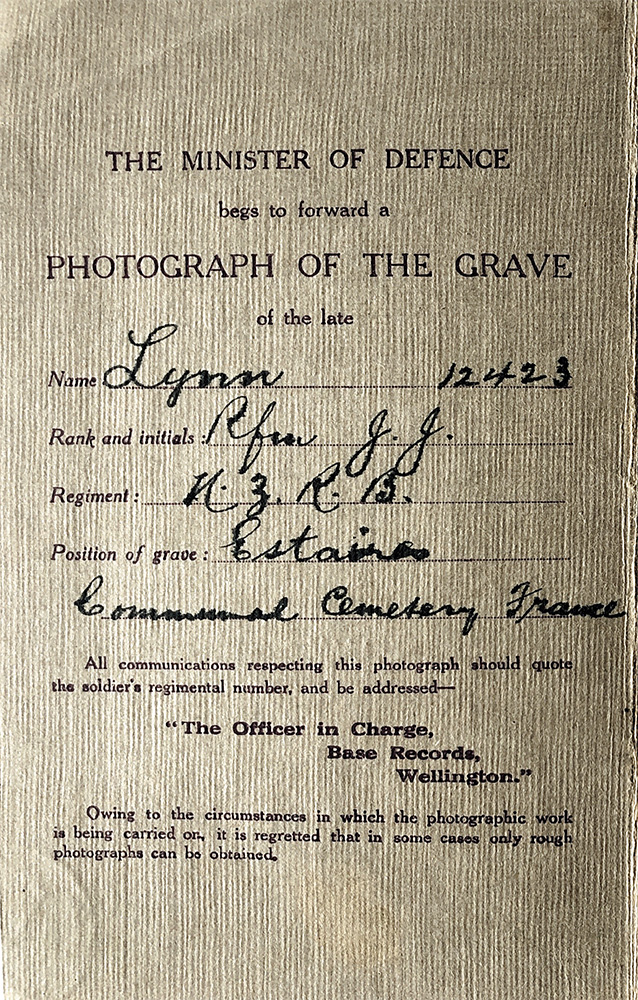 THE MINISTER OF DEFENCE
begs to forward a
PHOTOGRAPH OF THE GRAVE
of the late
Name Lynn 12423
Rank and initials : Rfm J. J.
Regiment : N. Z. R. B.
Position of grave : Estaires
Communal Cemetery France
All communications respecting this photograph should quote
the soldier's regimental number, and be addressed—
"The Officer in Charge,
Base Records,
Wellington."
Owing to the circumstances in which the photographic work
is being carried on, it is regretted that in some cases only rough
photographs can be obtained.